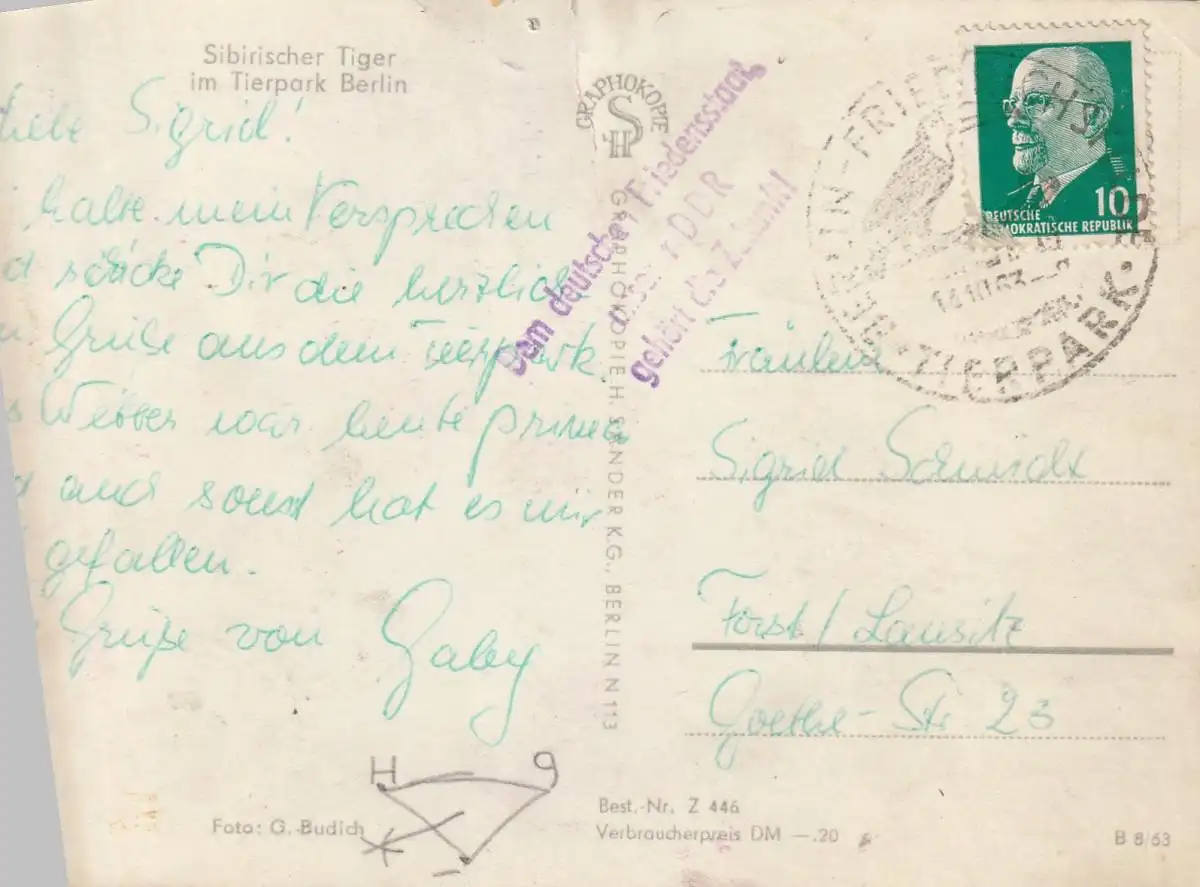 Sibirischer Tiger
im Tierpark Berlin
Liebe Sigrid!
halte mein Versprechen
d schicke Dir die herzlich
n Grüße aus dem Tierpark.
s Wetter war heute prima
d auch sonst hat es mir
gefallen.
Grüße von
Gaby
H 9
Foto: G. Budich
GRAPHOKOPIE
H S
GRAPHOKOPIE H. SANDER K.G., BERLIN N 113
Dem deutschen Friedensstaat,
unserer DDR
gehört die Zukunft!
BERLIN-FRIEDRICHSFELDE
TIERPARK.
14.10.63
10
DEUTSCHE
DEMOKRATISCHE REPUBLIK
Fräulein
Sigrid Schmidt
Forst/Lausitz
Goethe-Str 23
Best.-Nr. Z 446
Verbraucherpreis DM —.20
B 8/63